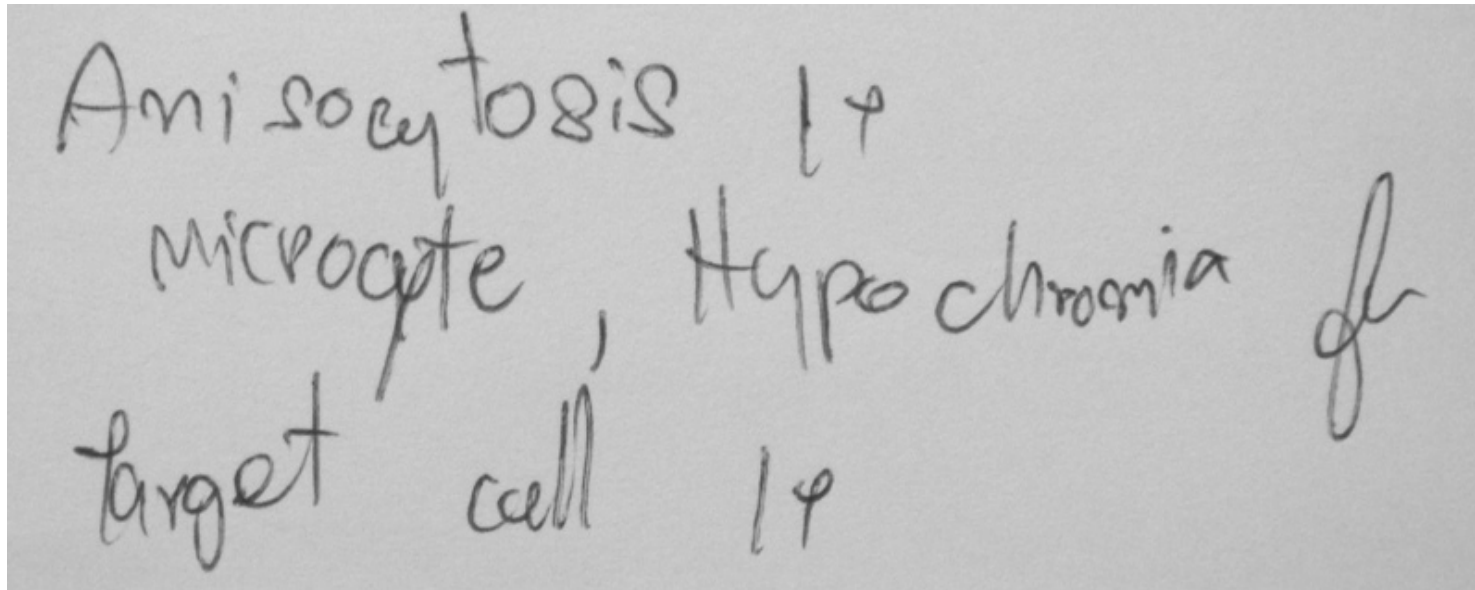 Anisocytosis 1+
Microcyte, Hypochromia
Target cell 1+